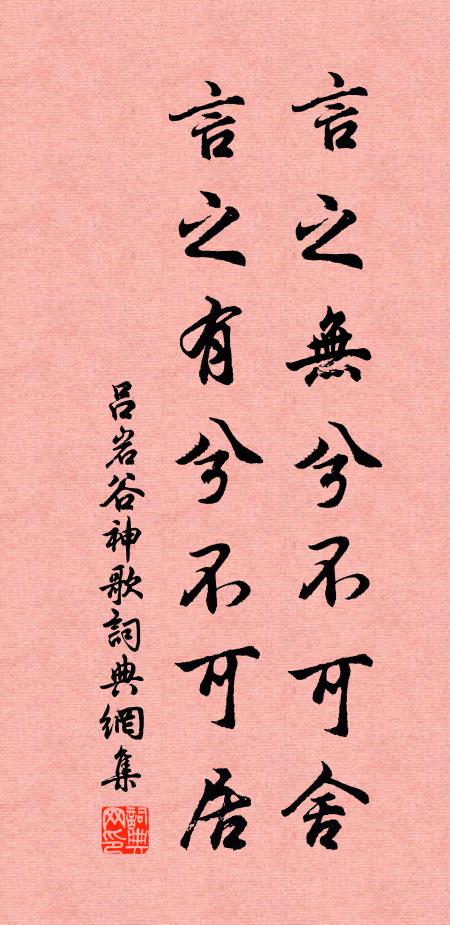 言之無兮不可舍
言之有兮不可居
呂岩谷神歌詞典網集
詞典网印